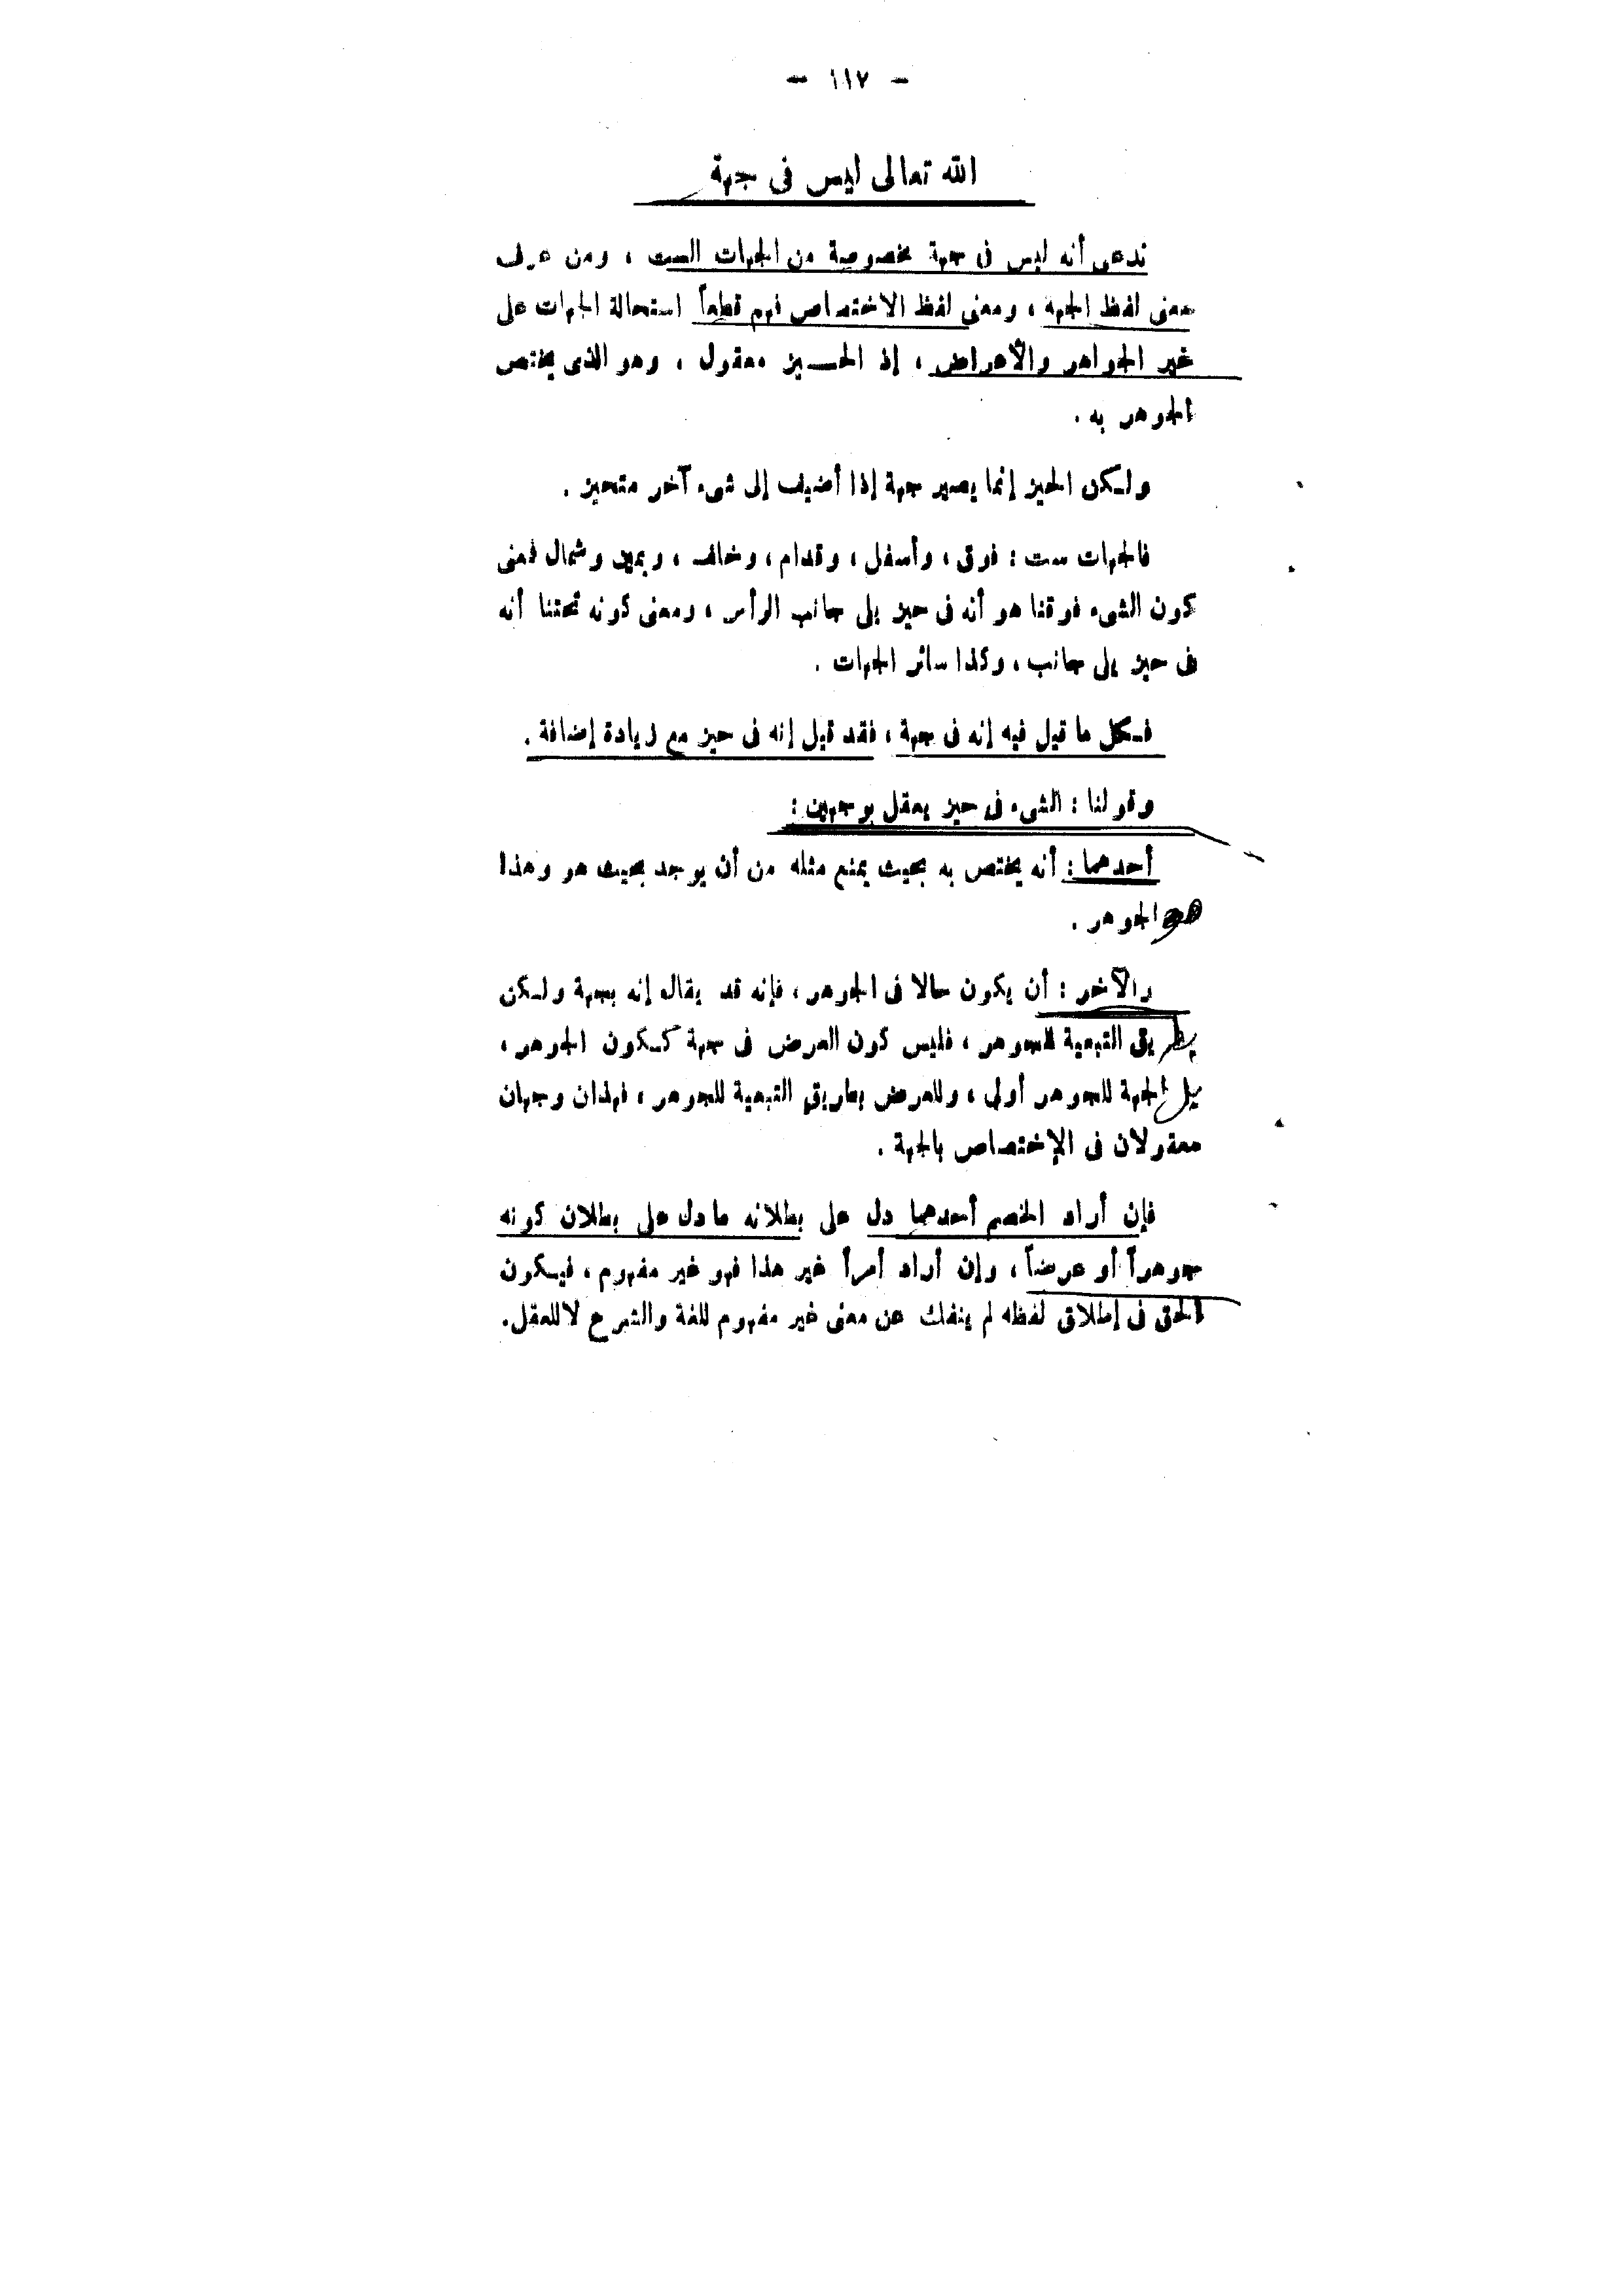 - ١١٧ -
الله تعالى ليس فى جهة
ندعى أنه ليس فى جهة مخصوصة من الجهات الست ، ومن عرف
معنى لفظ الجهة ، ومعنى لفظ الاختصاص فهم قطعاً استحالة الجهات على
غير الجواهر والأعراض ، إذ الحـــيز معقول ، وهو الذى يختص
الجوهر به .
ولـكن الحيز إنما يصير جهة إذا أضيف إلى شىء آخر متحيز .
فالجهات ست : فوق ، وأسفل ، وقدام ، وخلف ، ويمين وشمال فمعنى
كون الشىء فوقنا هو أنه فى حيز يلى جانب الرأس ، ومعنى كونه تحتنا أنه
فى حيز يلى جانب ، وكذا سائر الجهات .
فـكل ما قيل فيه إنه فى جهة ، فقد قيل إنه فى حيز مع زيادة إضافة .
وقولنا : الشىء فى حيز يعقل بوجهين :
أحدهما : أنه يختص به بحيث يمنع مثله من أن يوجد بحيث هو وهذا
هو الجوهر .
والآخر : أن يكون حالا فى الجوهر ، فإنه قد يقال إنه بجهة ولـكن
بطريق التبعية للجوهر ، فليس كون العرض فى جهة كـكون الجوهر ،
بل الجهة للجوهر أولى ، وللعرض بطريق التبعية للجوهر ، فهذان وجهان
معقولان فى الإختصاص بالجهة .
فإن أراد الخصم أحدهما دل على بطلانه ما دل على بطلان كونه
جوهراً أو عرضاً ، وإن أراد أمراً غير هذا فهو غير مفهوم ، فيـكون
الحق فى إطلاق لفظه لم ينفك عن معنى غير مفهوم للغة والشرع لا للعقل .